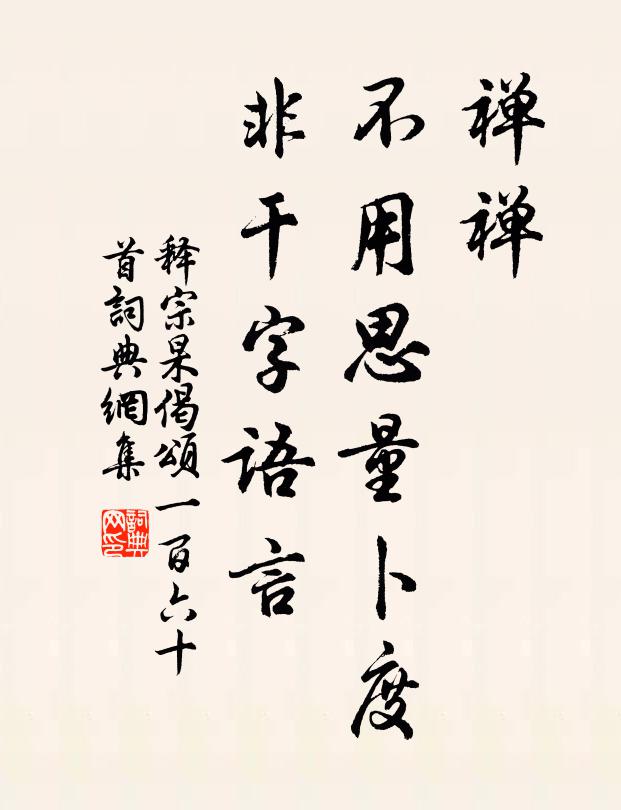 禅禅
不用思量卜度
非干字语言
释宗杲偈颂一百六十
首詞典網集
詞典
网印